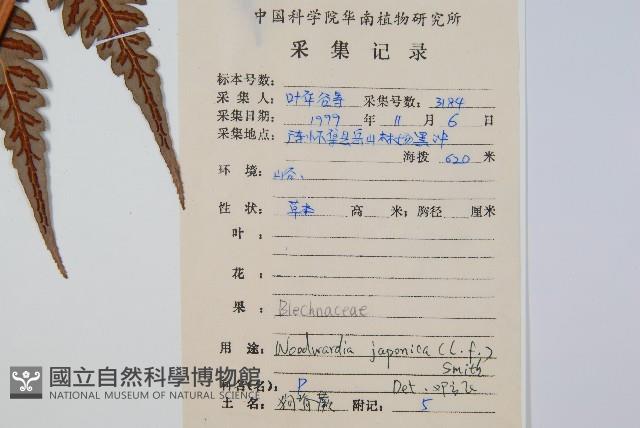 中国科学院华南植物研究所
采集记录
标本号数:
采集人: 叶华谷等 采集号数: 3184
采集日期: 1999 年 11 月 6 日
采集地点: 怀 县 山林场黑冲
海拨 620 米
环境: 山谷、
性状: 草本 高 米; 胸径 厘米
叶:
花:
果: Blechnaceae
用途: Woodwardia japonica (L.f.)
Smith
名): P Det.
土名: 狗脊蕨 附记: 5
國立自然科學博物館
NATIONAL MUSEUM OF NATURAL SCIENCE